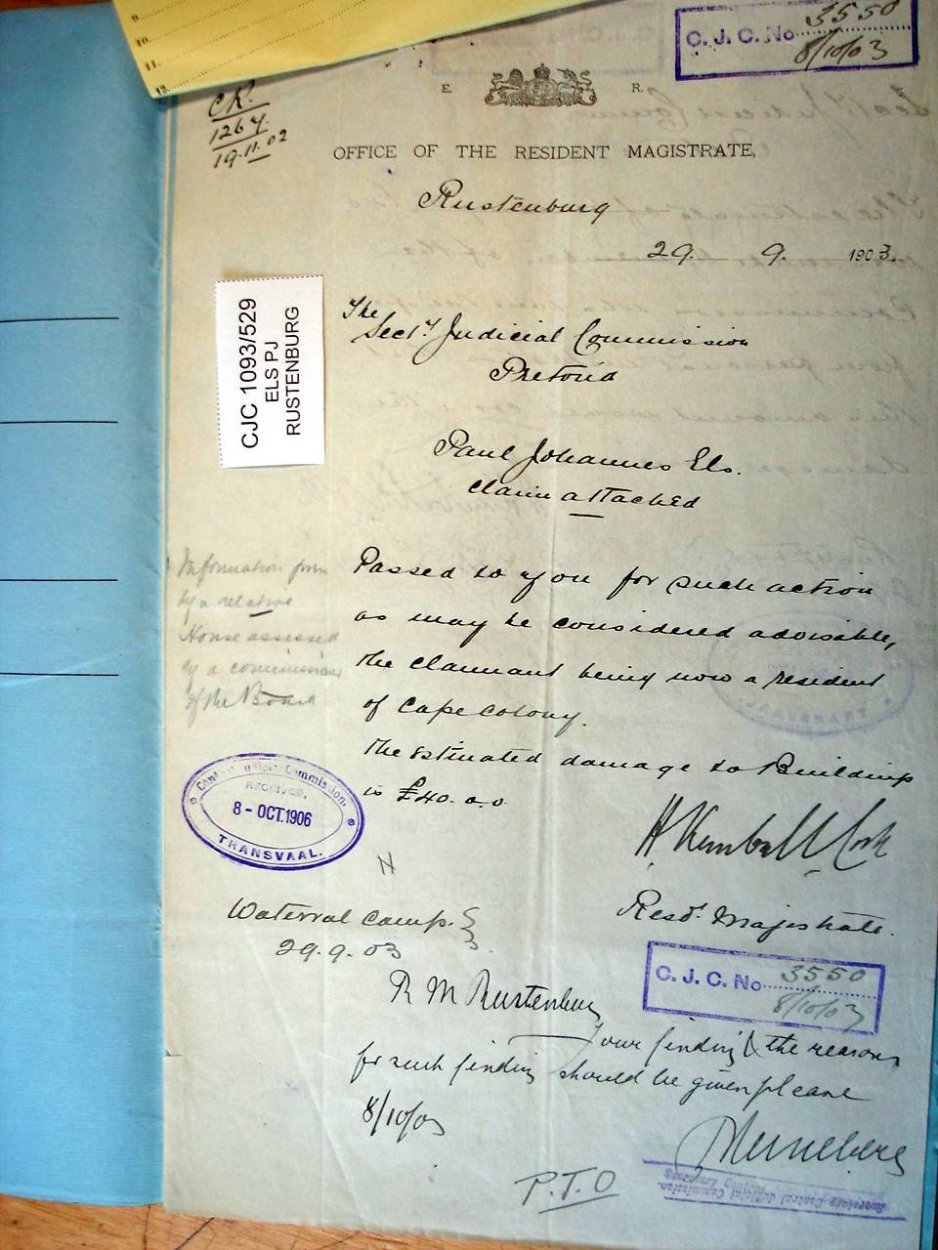 9.
10.
11.
12.
C. J. C. No 3550
8/10/03
E. R.
C.R.
1267
19.11.02
OFFICE OF THE RESIDENT MAGISTRATE,
Rustenburg
29. 9. 1903.
CJC 1093/529
ELS PJ
RUSTENBURG
The
Secty Judicial Commission
Pretoria
Paul Johannes Els.
Claim attached
Passed to you for such action
as may be considered advisable,
the claimant being now a resident
of Cape Colony.
The estimated damage to Buildings
is £40. 0. 0.
Information from
by a relative
House assessed
by a commission
of the Board
Central Judicial Commission.
RECEIVED,
8 - OCT. 1906
TRANSVAAL.
H Kemball Cook
Resdt. Magistrate.
Waterval Camp.
29.9.03
C. J. C. No 3550
8/10/03
R M Rustenburg
Your finding & the reasons
for such finding should be given please
8/10/03
Secretary Central Judicial Commission.
P.T.O